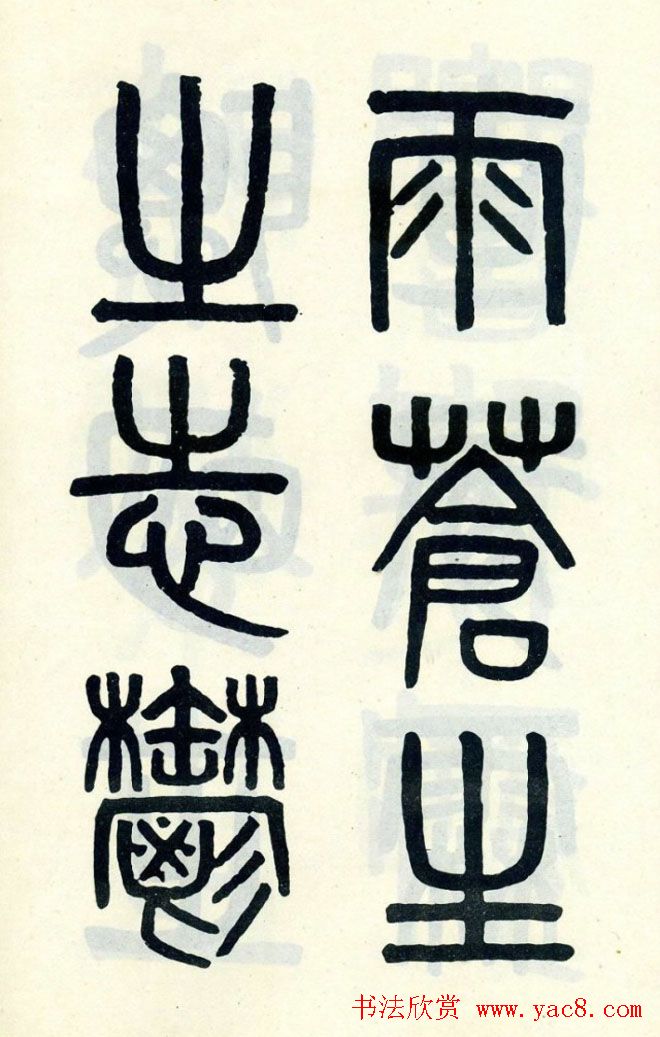 雨蒼生
之志鬱
书法欣赏 www.yac8.com